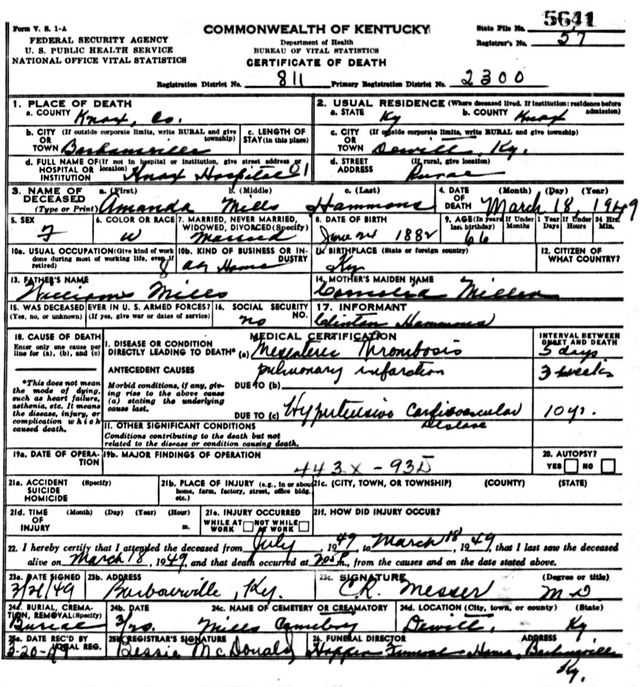 Form V. S. 1-A
FEDERAL SECURITY AGENCY
U. S. PUBLIC HEALTH SERVICE
NATIONAL OFFICE VITAL STATISTICS
COMMONWEALTH OF KENTUCKY
Department of Health
BUREAU OF VITAL STATISTICS
CERTIFICATE OF DEATH
State File No. 5641
Registrar's No. 57
Registration District No. 811 Primary Registration District No. 2300
1. PLACE OF DEATH
a. COUNTY Knox, Co.
2. USUAL RESIDENCE (Where deceased lived. If institution: residence before admission)
a. STATE Ky b. COUNTY Knox
b. CITY (If outside corporate limits, write RURAL and give township) OR TOWN Barbourville
c. LENGTH OF STAY (in this place)
c. CITY (If outside corporate limits, write RURAL and give township) OR TOWN Dewitt, Ky.
d. FULL NAME OF (If not in hospital or institution, give street address or location) HOSPITAL OR INSTITUTION Knox Hospital
d. STREET ADDRESS (If rural, give location) Rural
3. NAME OF DECEASED (Type or Print) a. (First) Amanda b. (Middle) Mills c. (Last) Hammons
4. DATE OF DEATH (Month) (Day) (Year) March 18, 1949
5. SEX F
6. COLOR OR RACE W
7. MARRIED, NEVER MARRIED, WIDOWED, DIVORCED (Specify) Married
8. DATE OF BIRTH June 24 1882
9. AGE (In years last birthday) 66 If Under 1 Year Months Days If Under 24 Hrs. Hours Min.
10a. USUAL OCCUPATION (Give kind of work done during most of working life, even if retired)
10b. KIND OF BUSINESS OR INDUSTRY at Home
11. BIRTHPLACE (State or foreign country) Ky
12. CITIZEN OF WHAT COUNTRY?
13. FATHER'S NAME William Mills
14. MOTHER'S MAIDEN NAME Cornelia Miller
15. WAS DECEASED EVER IN U. S. ARMED FORCES? (Yes, no, or unknown) (If yes, give war or dates of service)
16. SOCIAL SECURITY NO. no
17. INFORMANT Clinton Hammons
18. CAUSE OF DEATH
Enter only one cause per line for (a), (b), and (c)
*This does not mean the mode of dying, such as heart failure, asthenia, etc. It means the disease, injury, or complication which caused death.
MEDICAL CERTIFICATION
INTERVAL BETWEEN ONSET AND DEATH
I. DISEASE OR CONDITION DIRECTLY LEADING TO DEATH* (a) Mesenteric Thrombosis 5 days
ANTECEDENT CAUSES
Morbid conditions, if any, giving rise to the above cause (a) stating the underlying cause last.
DUE TO (b) pulmonary infarction 3 weeks
DUE TO (c) Hypertensive Cardiovascular disease 10 yr.
II. OTHER SIGNIFICANT CONDITIONS
Conditions contributing to the death but not related to the disease or condition causing death.
19a. DATE OF OPERATION
19b. MAJOR FINDINGS OF OPERATION
443X-93D
20. AUTOPSY? YES NO
21a. ACCIDENT SUICIDE HOMICIDE (Specify)
21b. PLACE OF INJURY (e.g., in or about home, farm, factory, street, office bldg. etc.)
21c. (CITY, TOWN, OR TOWNSHIP) (COUNTY) (STATE)
21d. TIME OF INJURY (Month) (Day) (Year) (Hour) m.
21e. INJURY OCCURRED WHILE AT WORK NOT WHILE AT WORK
21f. HOW DID INJURY OCCUR?
22. I hereby certify that I attended the deceased from July, 1949, to March 18, 1949, that I last saw the deceased
alive on March 18, 1949, and that death occurred at m., from the causes and on the date stated above.
23a. DATE SIGNED 3/21/49
23b. ADDRESS Barbourville, Ky.
23c. SIGNATURE (Degree or title) C.K. Messer M D
24a. BURIAL, CREMATION, REMOVAL (Specify) Burial
24b. DATE 3/20.
24c. NAME OF CEMETERY OR CREMATORY Mills Cemetery
24d. LOCATION (City, town, or county) (State) Dewitt, Ky
25a. DATE REC'D BY LOCAL REG. 3-20-49
25b. REGISTRAR'S SIGNATURE Bessie McDonald
26. FUNERAL DIRECTOR ADDRESS Hopper Funeral Home, Barbourville Ky.